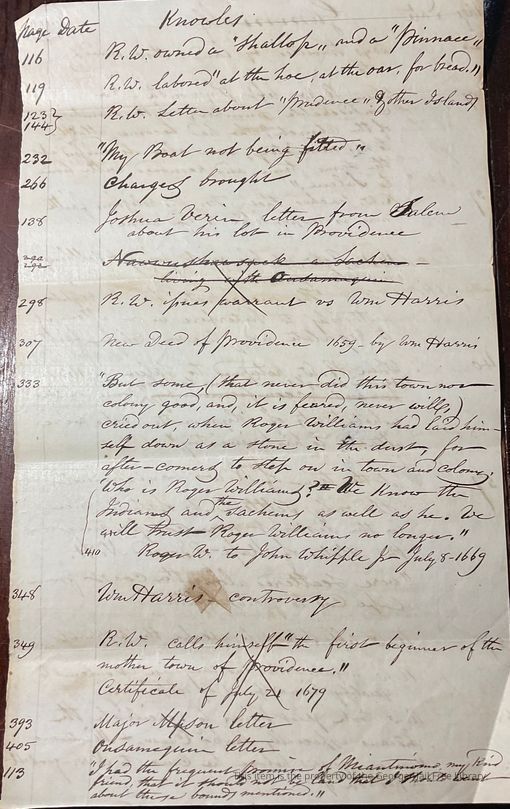 Page Date Knowles
116 R.W. owned a "Shallop" and a "Pinnace"
119 R.W. labored "at the hoe, at the oar, for bread."
123 } R.W. Letter about "Prudence" & other Islands
144 }
232 "My Boat not being fitted"
266 Charges brought
138 Joshua Verin letter from Salem
about his lot in Providence
292 a Sachem
living with Ousamequin
298 R.W. issues warrant vs Wm Harris
307 New Deed of Providence 1659 - by Wm Harris
333 "But some, (that never did this town nor
colony good, and, it is feared, never will,)
cried out, when Roger Williams had laid him-
self down as a stone in the dust, for
after-comers to step on in town and colony,
'Who is Roger Williams? We know the
Indians and the Sachems as well as he. We
will trust Roger Williams no longer."
410 Roger W. to John Whipple Jr July 8-1669
348 Wm Harris controversy
349 R.W. calls himself "the first beginner of the
mother town of Providence."
Certificate of July 21 1679
393 Major Mason letter
405 Ousamequin letter
113 "I had the frequent promise of Miantinomo, my kind
friend, that it should
about these bounds mentioned."
This item is the property of the George Hail Free Library